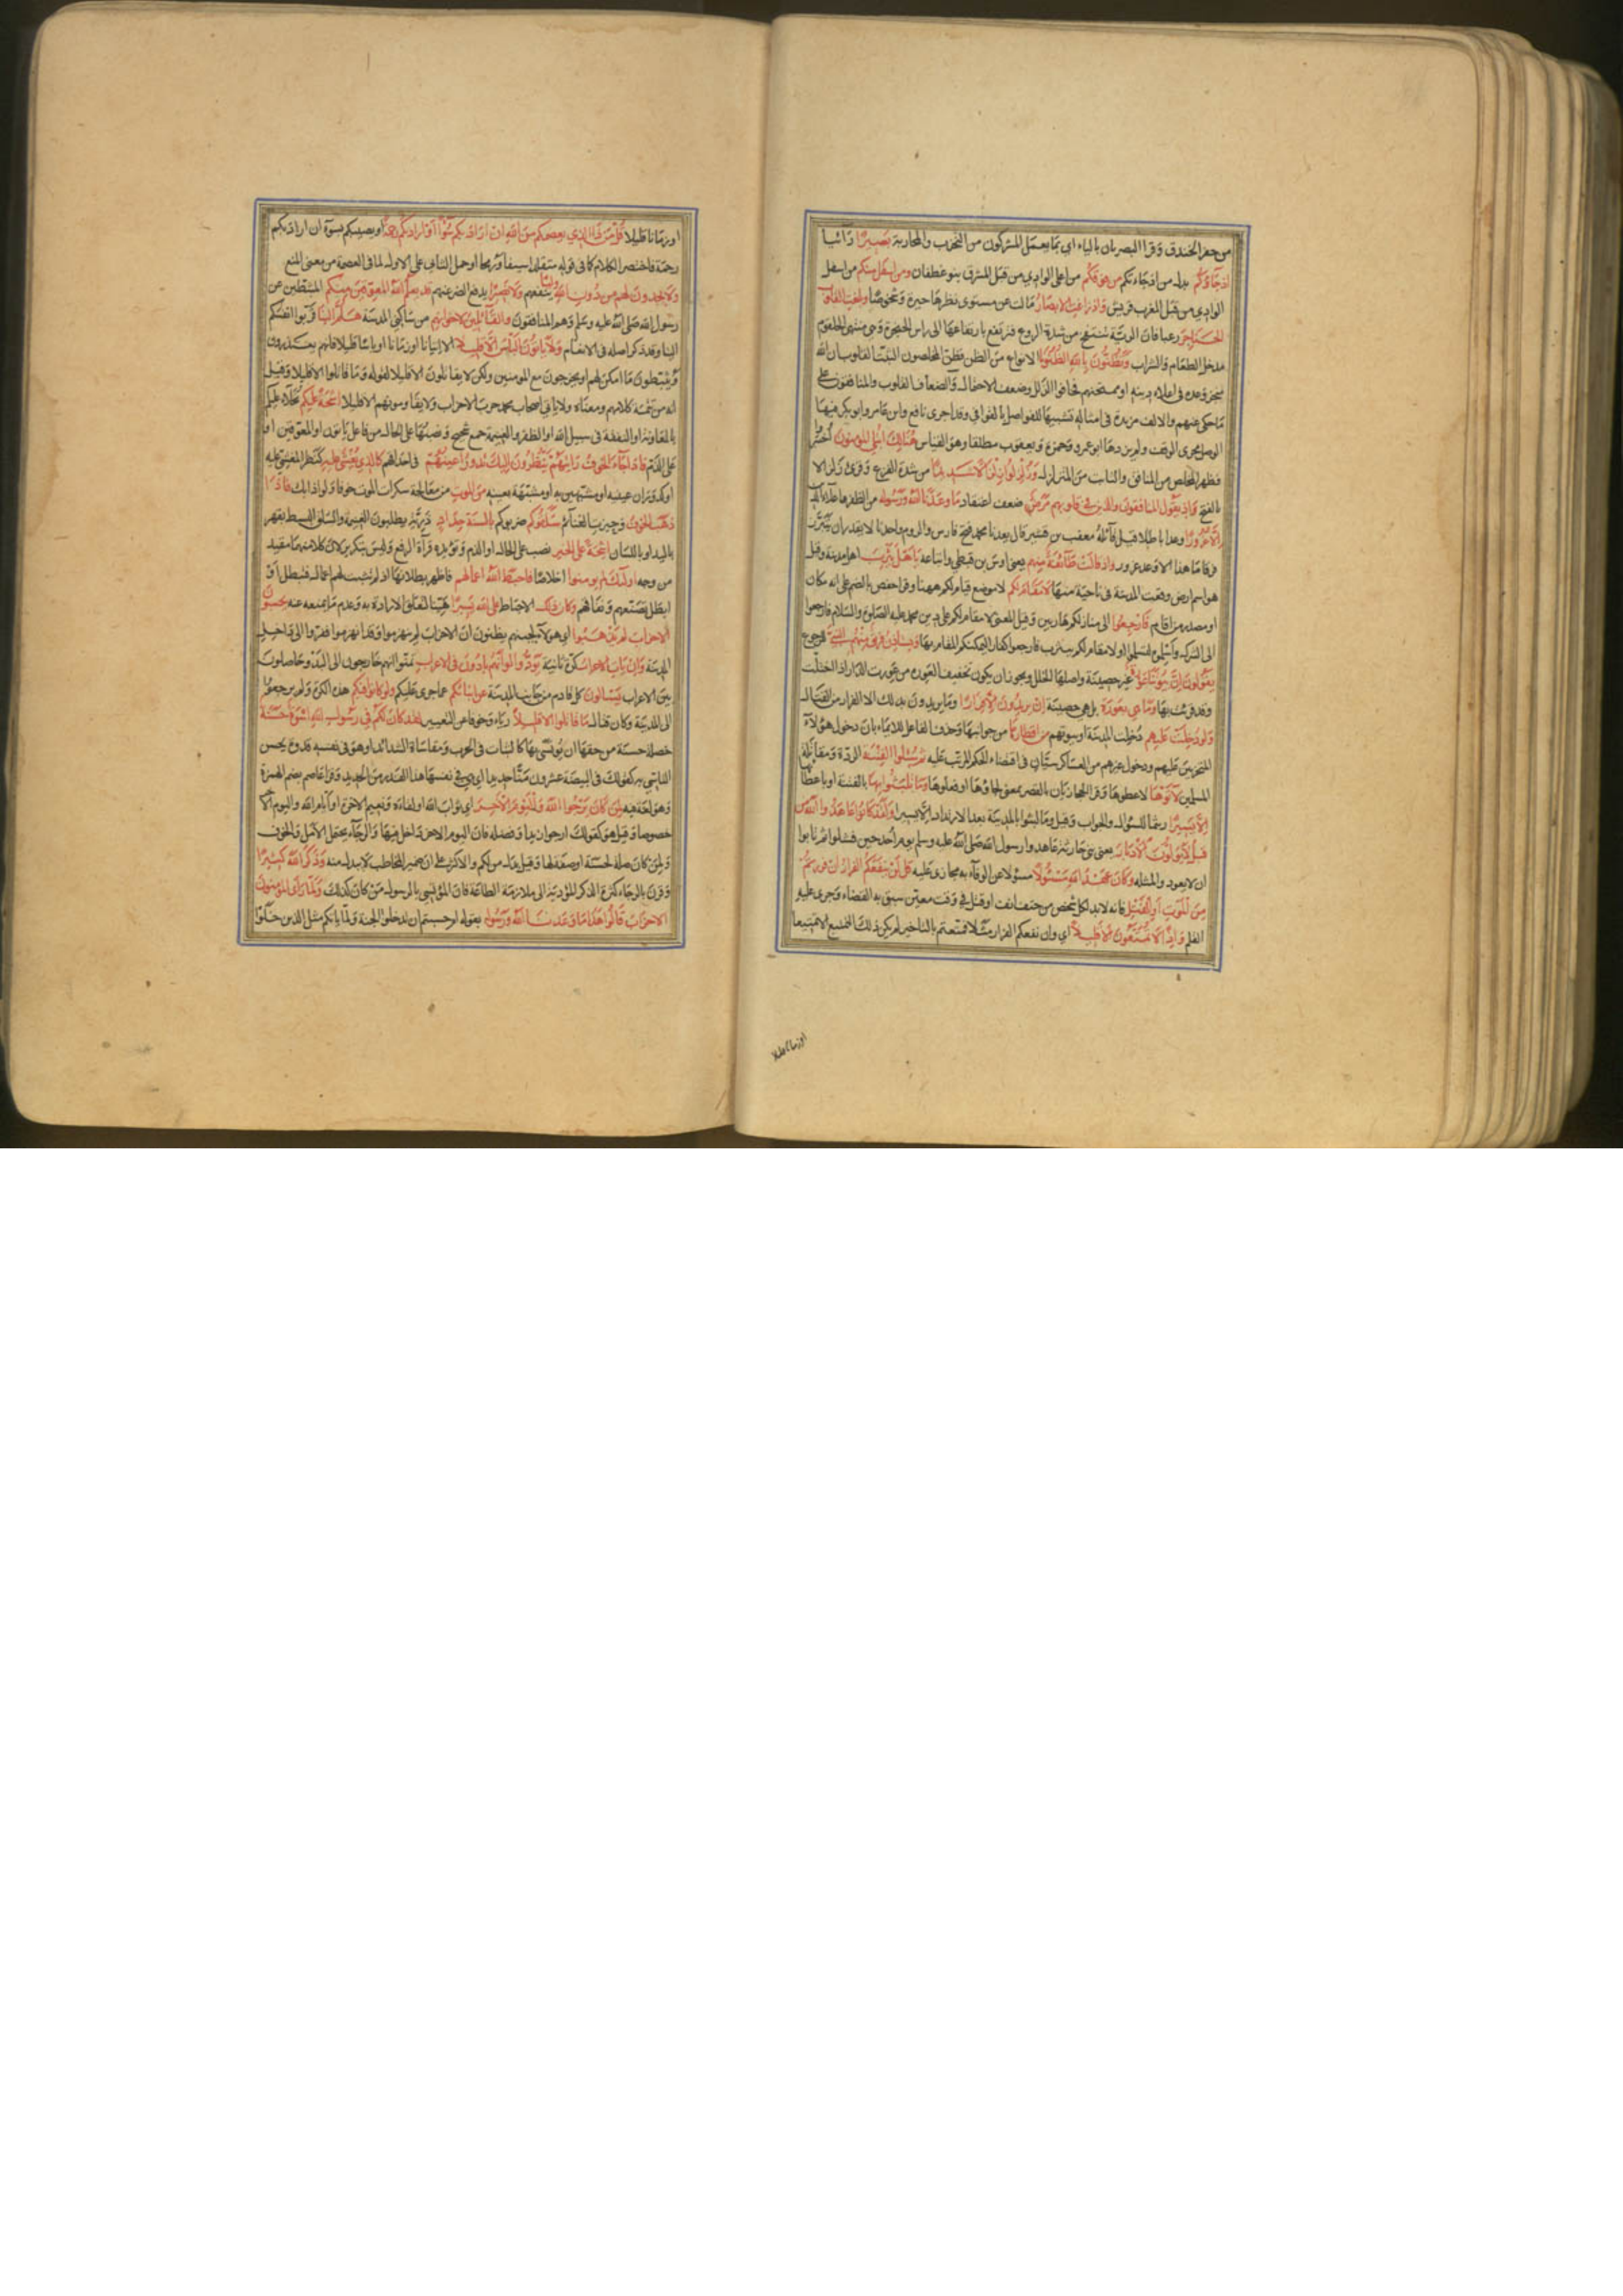 من حفر الخندق وقرا البصريان بالياء اي بما يعمل المشركون من التحزب والمحاربة بصيرا رائيا
اذ جاؤكم بدل من اذ جاءتكم من فوقكم من اعلى الوادي من قبل المشرق بنو غطفان ومن اسفل منكم من اسفل
الوادي من قبل المغرب قريش واذ زاغت الابصار مالت عن مستوى نظرها حيرة وشخوصا وبلغت القلوب
الحناجر رعبا فان الرئة تنتفخ من شدة الروع فترتفع بارتفاعها الى راس الحنجرة وهي منتهى الحلقوم
مدخل الطعام والشراب وتظنون بالله الظنونا الانواع من الظن فظن المخلصون الثبت القلوب ان الله
منجز وعده في اعلاء دينه او ممتحنهم فخافوا الزلل وضعف الاحتمال والضعاف القلوب والمنافقون
ما حكي عنهم والالف مزيدة في امثاله تشبيها للفواصل بالقوافي وقد اجرى نافع وابن عامر وابو بكر فيها
الوصل مجرى الوقف ولم يزدها ابو عمرو وحمزة ويعقوب مطلقا وهو القياس هنالك ابتلي المؤمنون اختبر
فظهر المخلص من المنافق والثابت من المتزلزل وزلزلوا زلزالا شديدا من شدة الفزع وقرئ زلزالا
بالفتح واذ يقول المنافقون والذين في قلوبهم مرض ضعف اعتقاد ما وعدنا الله ورسوله من الظفر واعلاء الدين
الا غرورا وعدا باطلا قيل قائله معتب بن قشير قال يعدنا محمد فتح فارس والروم واحدنا لا يقدر ان يتبرز
فرقا ما هذا الا وعد غرور واذ قالت طائفة منهم يعني اوس بن قيظي واتباعه يا اهل يثرب اهل مدينة وقيل
هو اسم ارض وقعت المدينة في ناحية منها لا مقام لكم لا موضع قيام لكم ههنا وقرا حفص بالضم على انه مكان
او مصدر من اقام فارجعوا الى منازلكم هاربين وقيل المعنى لا مقام لكم على دين محمد عليه الصلوة والسلام فارجعوا
الى الشرك واسلموه لتسلموا او لا مقام لكم بيثرب فارجعوا كفارا ليمكنكم المقام بها ويستاذن فريق منهم النبي للرجوع
يقولون ان بيوتنا عورة غير حصينة واصلها الخلل ويجوز ان يكون تخفيف العورة من عورت الدار اذا اختلت
وقد قرئت بها وما هي بعورة بل هي حصينة ان يريدون الا فرارا وما يريدون بذلك الا الفرار من القتال
ولو دخلت عليهم دخلت المدينة او بيوتهم من اقطارها من جوانبها وحذف الفاعل للايماء بان دخول هؤلاء
المتحزبين عليهم ودخول غيرهم من العساكر سيان في اقتضاء الحكم المرتب عليه ثم سئلوا الفتنة الردة ومقاتلة
المسلمين لاتوها لاعطوها وقرا الحجازيان بالقصر بمعنى لجاؤها او فعلوها وما تلبثوا بها بالفتنة او باعطائها
الا يسيرا ريثما للسؤال والجواب وقيل وما لبثوا بالمدينة بعد الارتداد الا يسيرا ولقد كانوا عاهدوا الله من
قبل لا يولون الادبار يعني بني حارثة عاهدوا رسول الله صلى الله عليه وسلم يوم احد حين فشلوا ثم تابوا
ان لا يعودوا لمثله وكان عهد الله مسئولا مسئولا عن الوفاء به مجازى عليه قل لن ينفعكم الفرار ان فررتم
من الموت او القتل فانه لابد لكل شخص من حتف انف او قتل في وقت معين سبق به القضاء وجرى عليه
القلم واذا لا تمتعون الا قليلا اي وان نفعكم الفرار مثلا فمتعتم بالتاخير لم يكن ذلك التمتيع الا تمتيعا
او زمانا قليلا
او زمانا قليلا قل من ذا الذي يعصمكم من الله ان اراد بكم سوءا او اراد بكم رحمة او يصيبكم بسوء ان اراد بكم
رحمة فاختصر الكلام كما في قوله متقلدا سيفا ورمحا او حمل الثاني على الاول لما في العصمة من معنى المنع
ولا يجدون لهم من دون الله وليا ينفعهم ولا نصيرا يدفع الضر عنهم قد يعلم الله المعوقين منكم المثبطين عن
رسول الله صلى الله عليه وسلم وهم المنافقون والقائلين لاخوانهم من ساكني المدينة هلم الينا قربوا انفسكم
الينا وقد ذكر اصله في الانعام ولا ياتون الباس الا قليلا الا اتيانا او زمانا او باسا قليلا فانهم يعتذرون
ويثبطون ما امكن لهم او يخرجون مع المؤمنين ولكن لا يقاتلون الا قليلا لقوله وما قاتلوا الا قليلا وقيل
انه من تتمة كلامهم ومعناه ولا ياتي اصحاب محمد حرب الاحزاب ولا يقاومونهم الا قليلا اشحة عليكم بخلاء عليكم
بالمعاونة او النفقة في سبيل الله او الظفر والغنيمة جمع شحيح ونصبها على الحال من فاعل ياتون او المعوقين او
على الذم فاذا جاء الخوف رايتهم ينظرون اليك تدور اعينهم في احداقهم كالذي يغشى عليه كنظر المغشي عليه
او كدوران عينيه او مشبهين به او مشبهة بعينه من الموت من معالجة سكرات الموت خوفا ولواذا بك فاذا
ذهب الخوف وحيزت الغنائم سلقوكم ضربوكم بالسنة حداد ذربة يطلبون الغنيمة والسلق البسط بقهر
باليد او باللسان اشحة على الخير نصب على الحال او الذم ويؤيده قراءة الرفع وليس بتكرير لان كلا منهما مقيد
من وجه اولئك لم يؤمنوا اخلاصا فاحبط الله اعمالهم فاظهر بطلانها اذ لم تثبت لهم اعمال فتبطل او
ابطل تصنعهم ونفاقهم وكان ذلك الاحباط على الله يسيرا هينا لتعلق الارادة به وعدم ما يمنعه عنه يحسبون
الاحزاب لم يذهبوا اي هؤلاء لجبنهم يظنون ان الاحزاب لم ينهزموا وقد انهزموا ففروا الى داخل
المدينة وان يات الاحزاب كرة ثانية يودوا لو انهم بادون في الاعراب تمنوا انهم خارجون الى البدو حاصلون
بين الاعراب يسالون كل قادم من جانب المدينة عن انبائكم عما جرى عليكم ولو كانوا فيكم هذه الكرة ولم يرجعوا
الى المدينة وكان قتال ما قاتلوا الا قليلا رياء وخوفا عن التعيير لقد كان لكم في رسول الله اسوة حسنة
خصلة حسنة من حقها ان يؤتسى بها كالثبات في الحرب ومقاساة الشدائد او هو في نفسه قدوة يحسن
التاسي به كقولك في البيضة عشرون منا حديد اي هي في نفسها هذا القدر من الحديد وقرا عاصم بضم الهمزة
وهو لغة فيه لمن كان يرجوا الله واليوم الاخر اي ثواب الله او لقاءه ونعيم الاخرة او ايام الله واليوم الاخر
خصوصا وقيل هو كقولك ارجو زيدا وفضله فان اليوم الاخر داخل فيها والرجاء يحتمل الامل والخوف
ولمن كان صلة لحسنة او صفة لها وقيل بدل من لكم والاكثر على ان ضمير المخاطب لا يبدل منه وذكر الله كثيرا
وقرن بالرجاء كثرة الذكر المؤدية الى ملازمة الطاعة فان المؤتسي بالرسول من كان كذلك ولما راى المؤمنون
الاحزاب قالوا هذا ما وعدنا الله ورسوله بقوله ام حسبتم ان تدخلوا الجنة ولما ياتكم مثل الذين خلوا